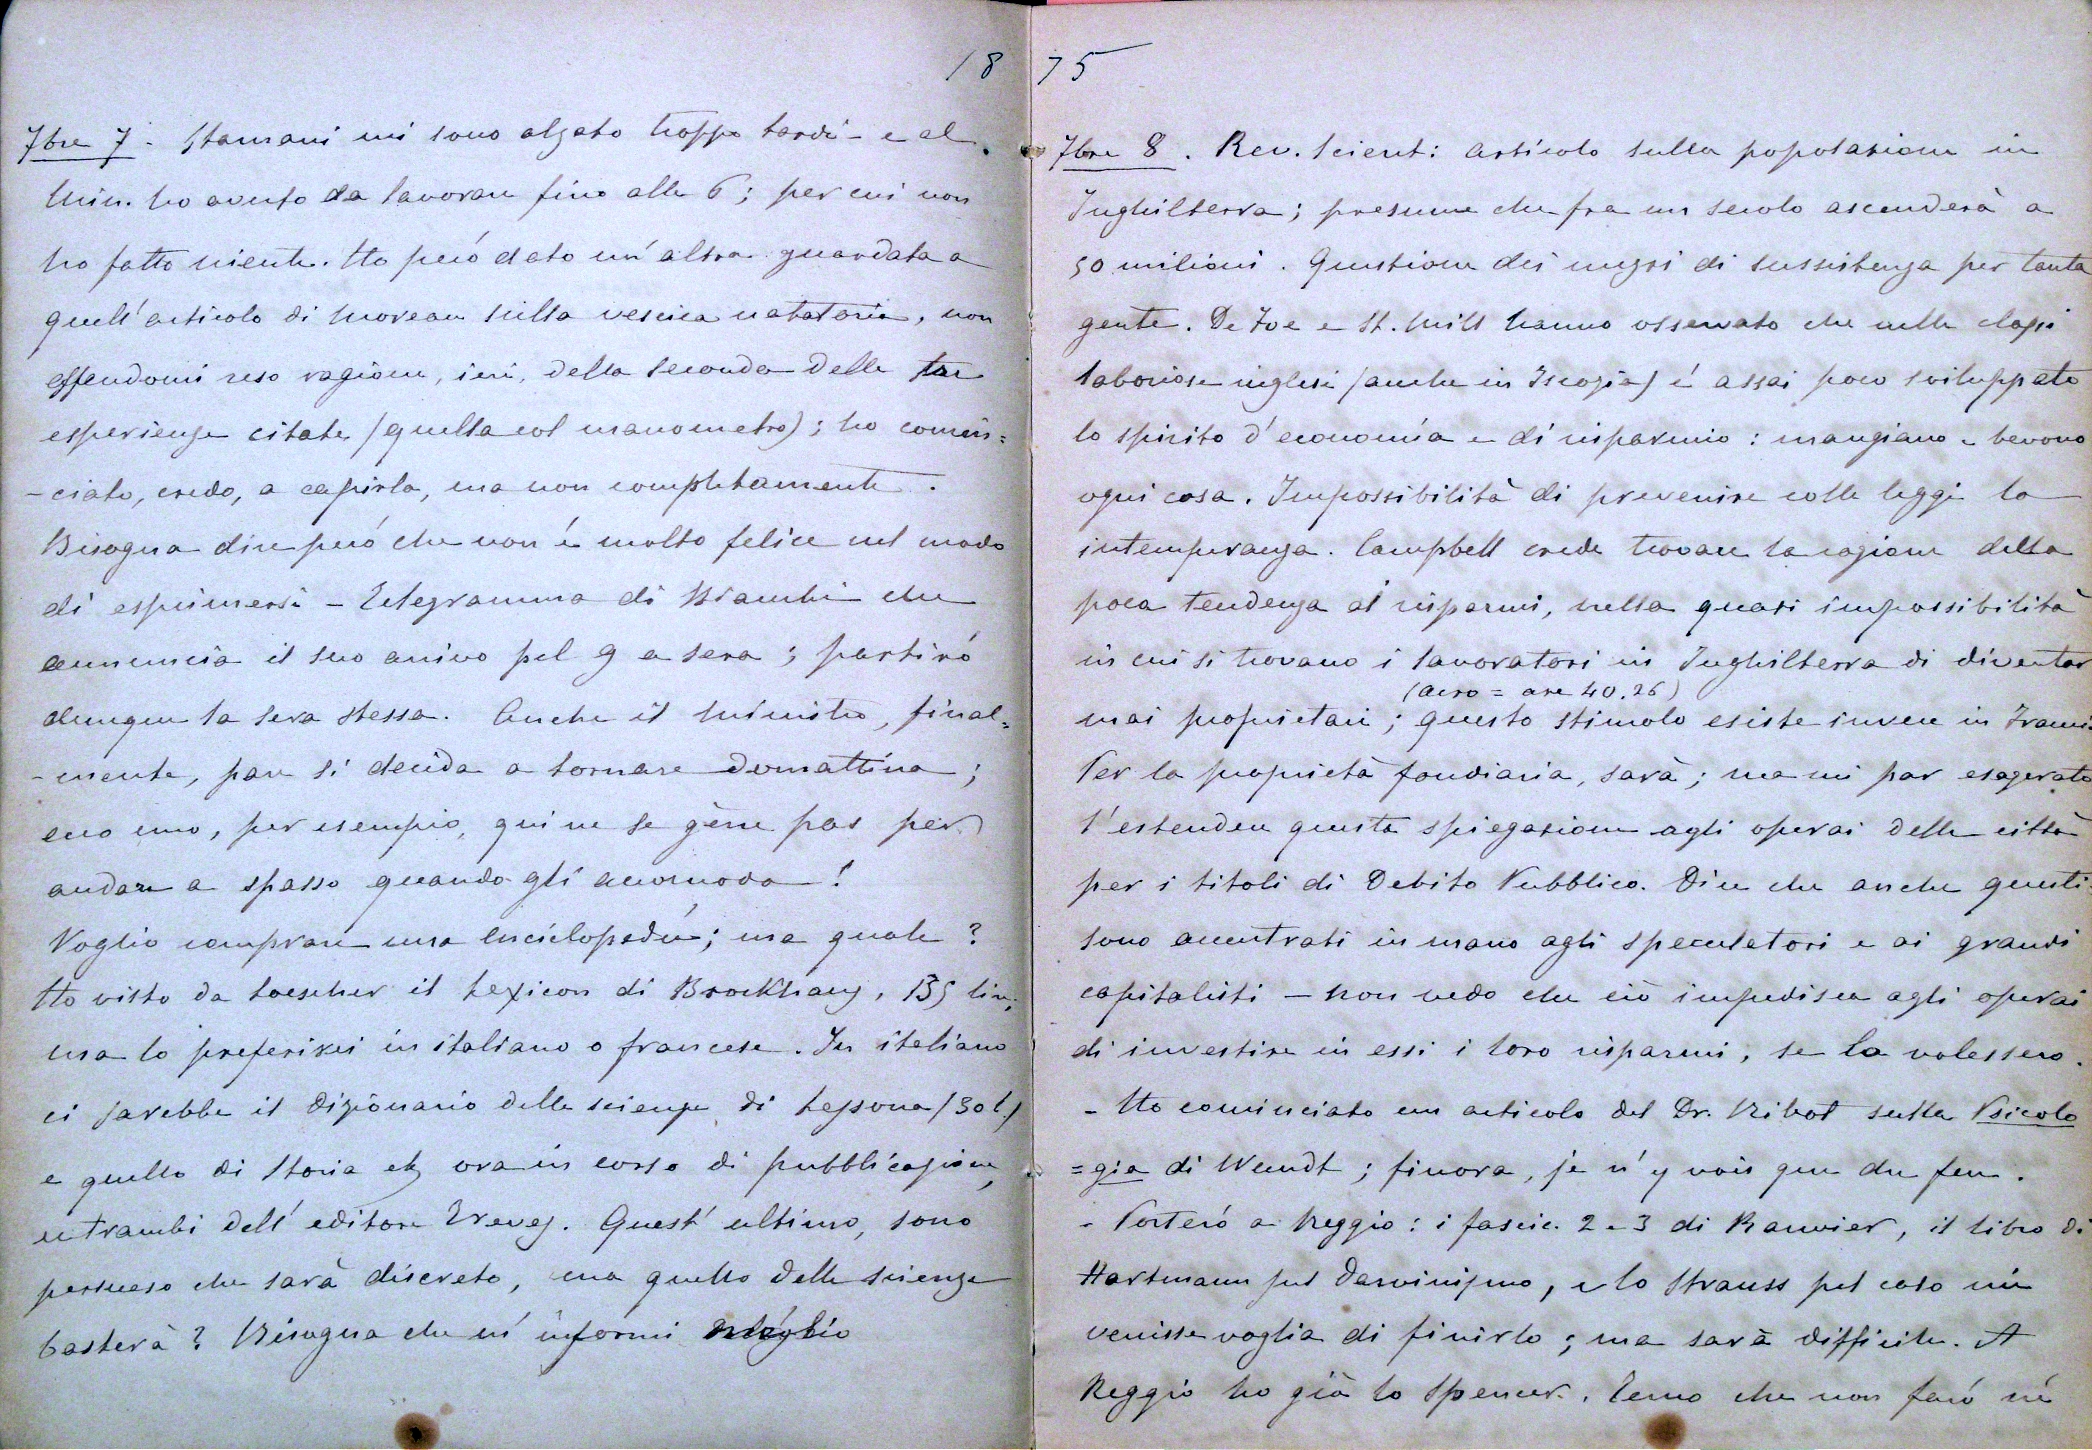 18
7bre 7. Stamani mi sono alzato troppo tardi - e al
Min. ho avuto da lavorare fino alle 6; per cui non
ho fatto niente. Ho peró dato un'altra guardata a
quell'articolo di Moreau sulla vescica natatoria, non
essendomi reso ragione, ieri, della seconda delle tre
esperienze citate (quella col manometro); ho comin=
-ciato, credo, a capirla, ma non completamente.
Bisogna dire peró che non é molto felice nel modo
di esprimersi - Telegramma di Bianchi che
annuncia il suo arrivo pel 9 a sera; partiró
dunque la sera stessa. Anche il Ministro, final=
-mente, pare si decida a tornare domattina;
ecco uno, per esempio, qui ne se gène pas per
andare a spasso quando gli accomoda!
Voglio comprare una Enciclopedia; ma quale?
Ho visto da Loescher il Lexicon di Brockhaus, 135 lire;
ma lo preferirei in italiano o francese. In italiano
ci sarebbe il Dizionario delle scienze di Lessona (30 l.)
e quello di Storia etc ora in corso di pubblicazione,
entrambi dell'editore Treves. Quest'ultimo, sono
persuaso che sarà discreto, ma quello delle scienze
basterà? Bisogna che m'informi meglio
75
7bre 8. Rev. Scient: articolo sulla popolazione in
Inghilterra; presume che fra un secolo ascenderà a
50 milioni. Questione dei mezzi di sussistenza per tanta
gente. De Foe e St. Mill hanno osservato che nelle classi
laboriose inglesi (anche in Iscozia) é assai poco sviluppato
lo spirito d'economia e di risparmio: mangiano e bevono
ogni cosa. Impossibilità di prevenire colle leggi la
intemperanza. Campbell crede trovare la ragione della
poca tendenza ai risparmi, nella quasi impossibilità
in cui si trovano i lavoratori in Inghilterra di diventar
(acro = are 40.26)
mai proprietari; questo stimolo esiste invece in Franci.
Per la proprietà fondiaria, sarà; ma mi par esagerato
l'estendere questa spiegazione agli operai delle città
per i titoli di Debito Pubblico. Dice che anche questi
sono accentrati in mano agli speculatori e ai grandi
capitalisti - non vedo che ciò impedisca agli operai
di investire in essi i loro risparmi, se lo volessero.
- Ho cominciato un articolo del Dr. Ribot sulla Psicolo
=gia di Wundt; finora, je n'y vois que du feu.
- Porteró a Reggio: i fascic. 2 e 3 di Ranvier, il libro di
Hartmann sul Darwinismo, e lo Strauss pel caso mi
venisse voglia di finirlo; ma sarà difficile. A
Reggio ho già lo Spencer. Temo che non faró né